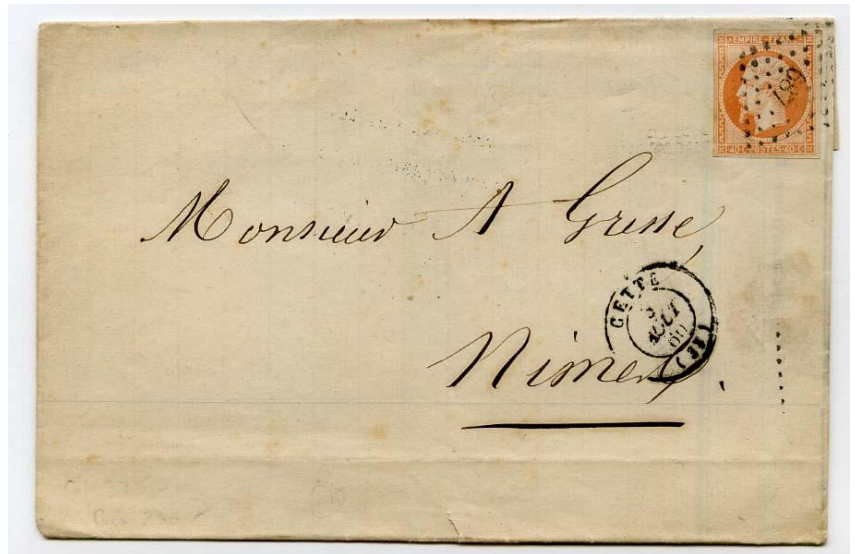 EMPIRE FRANC
687
40 C POSTES 40 C
Monsieur A Grisse
CETTE
3
AOUT
60
(33)
Nimes.